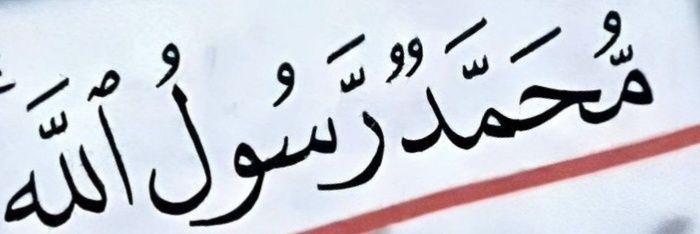 مُّحَمَّدٌ رَّسُولُ ٱللَّه